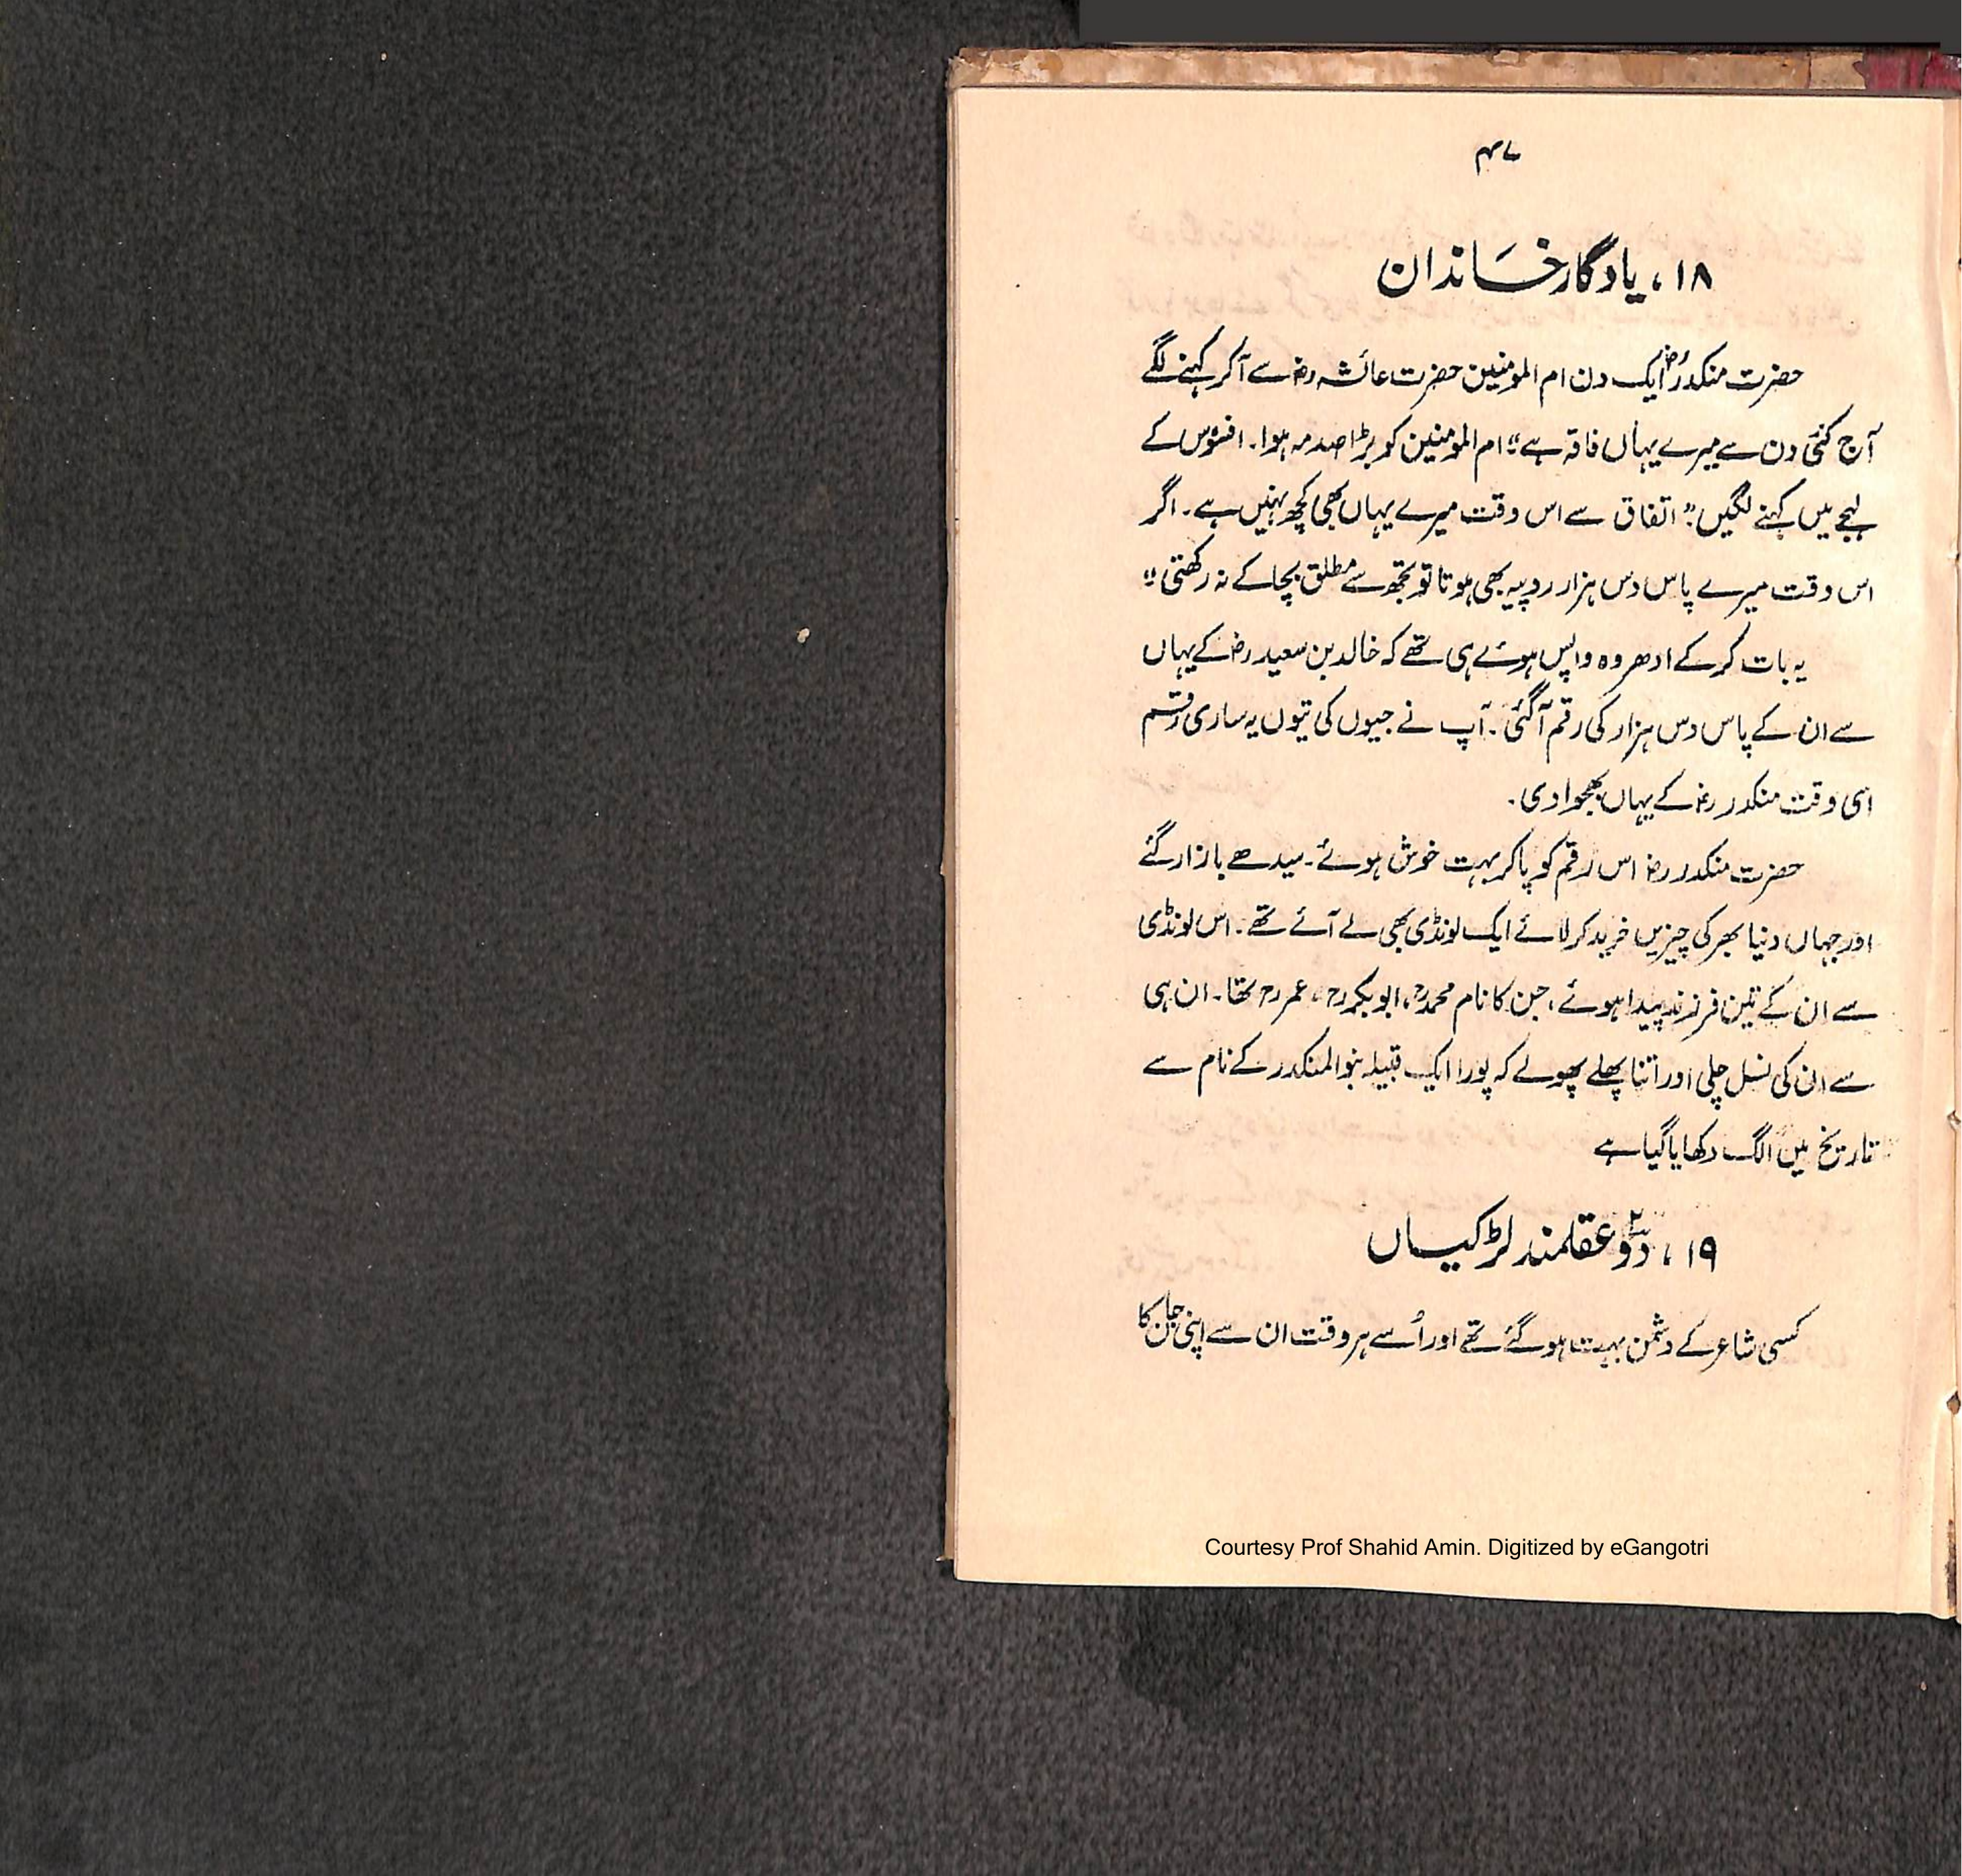 ۴۷
۱۸، یادگار خاندان
حضرت منکدرؓ ایک دن ام المومنین حضرت عائشہ رضؓ سے آکر کہنے لگے
آج کئی دن سے میرے یہاں فاقہ ہے“ ام المومنین کو بڑا صدمہ ہوا۔ افسوس کے
لہجے میں کہنے لگیں” اتفاق سے اس وقت میرے یہاں بھی کچھ نہیں ہے۔ اگر
اس وقت میرے پاس دس ہزار روپیہ بھی ہوتا تو تجھ سے مطلق بچا کے نہ رکھتی“
یہ بات کر کے ادھر وہ واپس ہوئے ہی تھے کہ خالد بن سعید رضؓ کے یہاں
سے ان کے پاس دس ہزار کی رقم آگئی۔ آپ نے جیوں کی تیوں یہ ساری رقم
اسی وقت منکدر رضؓ کے یہاں بھجوا دی۔
حضرت منکدر رضؓ اس رقم کو پاکر بہت خوش ہوئے۔ سیدھے بازار گئے
اور جہاں دنیا بھر کی چیزیں خرید کر لائے ایک لونڈی بھی لے آئے تھے۔ اس لونڈی
سے ان کے تین فرزند پیدا ہوئے، جن کا نام محمدؒ، ابوبکرؒ، عمرؒ تھا۔ ان ہی
سے ان کی نسل چلی اور اتنا پھلے پھولے کہ پورا ایک قبیلہ بنو المنکدر کے نام سے
تاریخ میں الگ دکھایا گیا ہے
۱۹، دو۲ عقلمند لڑکیاں
کسی شاعر کے دشمن بہت ہو گئے تھے اور اُسے ہر وقت ان سے اپنی جان کا
Courtesy Prof Shahid Amin. Digitized by eGangotri